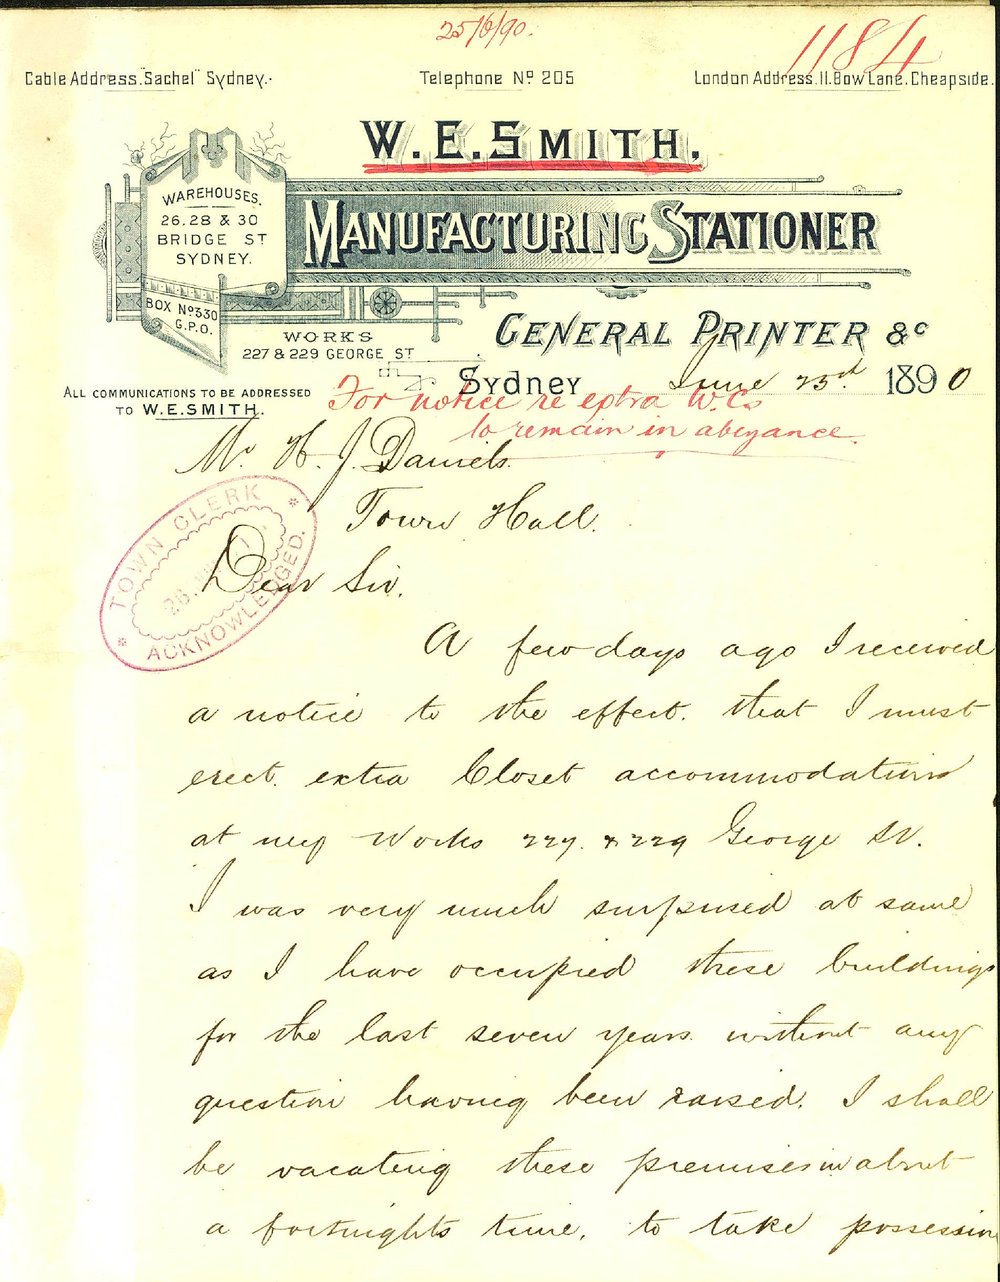 25/6/90.
1184
Cable Address. "Sachel" Sydney.
Telephone No 205
London Address. 11. Bow Lane. Cheapside.
W. E. SMITH.
MANUFACTURING STATIONER
WAREHOUSES.
26, 28 & 30
BRIDGE ST
SYDNEY.
BOX No 330
G.P.O.
WORKS
227 & 229 GEORGE ST
GENERAL PRINTER &c
ALL COMMUNICATIONS TO BE ADDRESSED
TO W.E.SMITH.
Sydney June 23rd 1890
For notice re extra W.Cs
to remain in abeyance.
Mr H. J. Daniels.
Town Hall.
TOWN CLERK
ACKNOWLEDGED.
Dear Sir.
A few days ago I received
a notice to the effect. that I must
erect. extra Closet accommodation
at my Works 227. & 229 George St.
I was very much surprised at same
as I have occupied these buildings
for the last seven years. without any
question having been raised. I shall
be vacating these premises in about
a fortnights time, to take possession